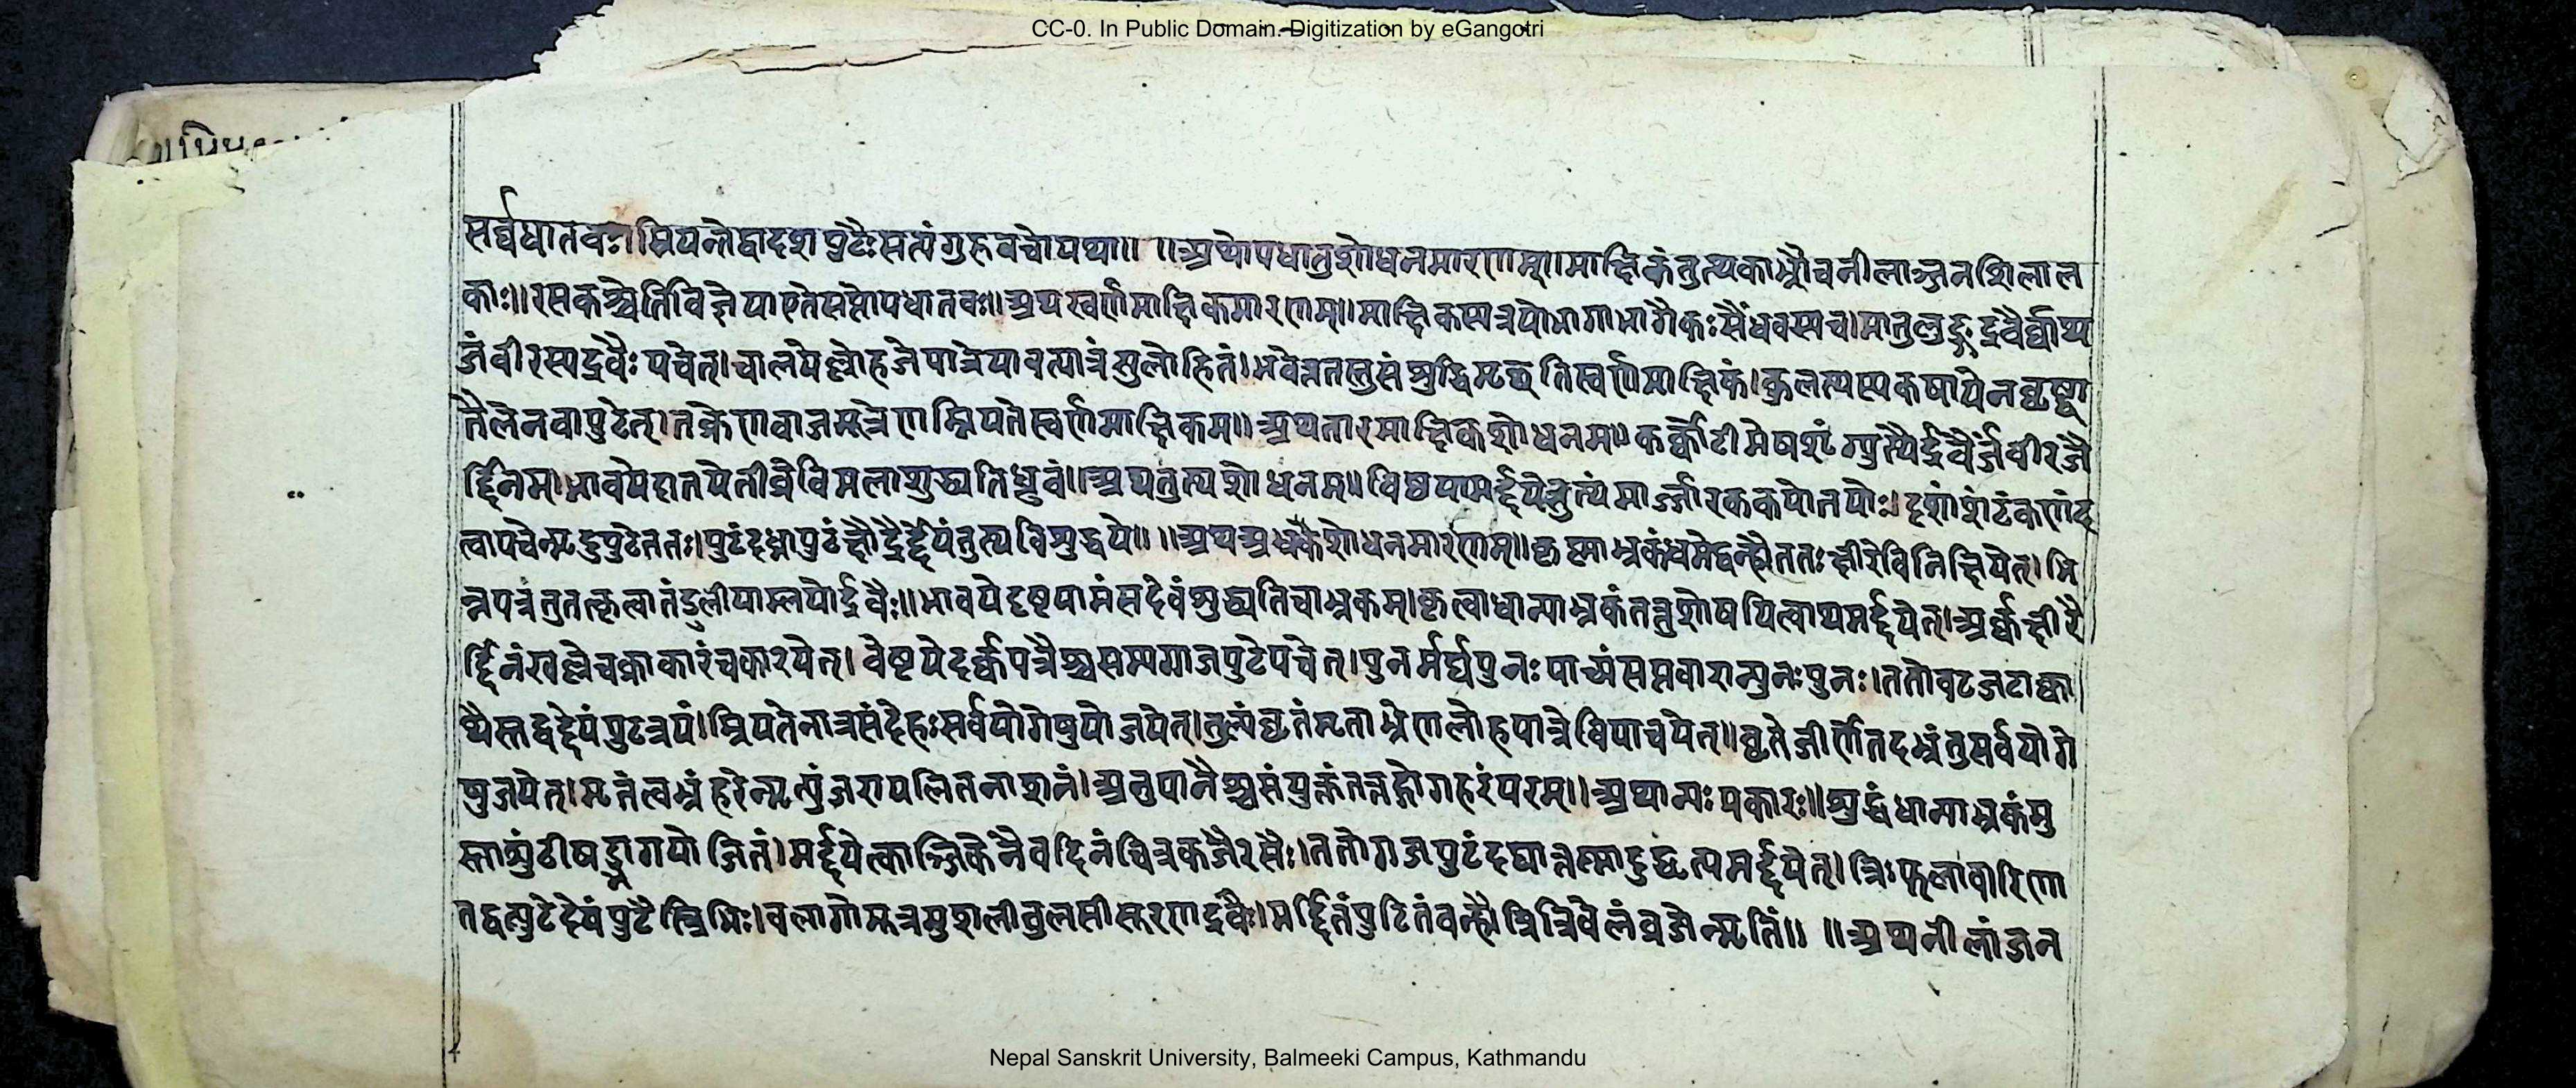 CC-0. In Public Domain. Digitization by eGangotri
सर्व्वधातवः।म्रियन्तेद्वादशपुटैःसत्यंगुरुवचोयथा॥ ॥अथोपधातुशोधनमारणम्॥माक्षिकंतुत्थकाभ्रौचनीलाञ्जनशिलाल
काः॥रसकश्चेतिविज्ञेयाएतेसप्तोपधातवः॥अथस्वर्णमाक्षिकमारणम्॥माक्षिकस्यत्रयोभागाभागैकःसैंधवस्यच।मातुलुङ्गद्रवैर्व्वाथ
जंवीरस्यद्रवैःपचेत्।चालयेल्लोहजेपात्रेयावत्पात्रंसुलोहितं।भवेत्ततस्तुसंशुद्धिमृच्छतिस्वर्णमाक्षिकं।कुलत्थस्यकषायेनघृष्ट्वा
तैलेनवापुटेत्।तक्रेणवाजमूत्रेणम्रियतेस्वर्णमाक्षिकम्॥अथतारमाक्षिकशोधनम्॥कर्क्कोटीमेषशृंग्युत्थैर्द्रवैर्जंवीरजै
र्द्दिनम्।भावयेदातपेतीव्रेविमलाशुद्ध्यतिध्रुवं॥अथतुत्थशोधनम्॥विष्ठयामर्द्दयेत्तुत्थंमार्ज्जारककपोतयोः।दशांशंटंकणंद
त्वापचेन्मृदुपुटेततः।पुटंदध्नापुटंक्षौद्रैर्द्देयंतुत्थविशुद्धये॥ ॥अथअभ्रकशोधनमारणम्॥कृष्णाभ्रकंधमेद्वन्हौततःक्षीरेविनिक्षिपेत्।भि
न्नपत्रंतुतत्कृत्वातंडुलीयाम्लयोर्द्रवैः॥भावयेदष्टयामंसदेवंशुद्ध्यतिचाभ्रकम्।कृत्वाधान्याभ्रकंतत्तुशोषयित्वाथमर्द्दयेत्।अर्क्कक्षीरै
र्द्दिनंखल्लेचक्राकारंचकारयेत्। वेष्टयेदर्क्कपत्रैश्चसम्यग्गजपुटेपचेत्।पुनर्मर्द्यपुनःपाच्यंसप्तवारान्पुनःपुनः।ततोवटजटाक्वा
थैस्तद्वद्देयंपुटत्रयं।म्रियतेनात्रसंदेहःसर्वयोगेषुयोजयेत्।तुल्यंघृतंमृताभ्रेणलोहपात्रेविपाचयेत्॥घृतेजीर्णेतदभ्रंतुसर्वयोगे
षुजयेत्।मृतंत्वभ्रंहरेन्मृत्युंजरापलितनाशनं।अनुपानैश्चसंयुक्तंतत्तद्रोगहरंपरम्॥अथान्यःप्रकारः॥शुद्धंधान्याभ्रकंमु
स्ताशुंठीषड्भागयोजितं।मर्द्दयेत्काञ्जिकेनैवदिनंचित्रकजैरसैः।ततोगजपुटंदद्यात्तस्मादुद्धृत्यमर्द्दयेत्।त्रिःफलावारिणा
तद्वत्पुटेद्देयंपुटैस्त्रिभिः।वलागोमूत्रमुशलीतुलसीसूरणद्रवैः।मर्द्दितंपुटितंवन्हौत्रित्रिवेलंव्रजेन्मृतिं॥ ॥अथनीलांजन
Nepal Sanskrit University, Balmeeki Campus, Kathmandu